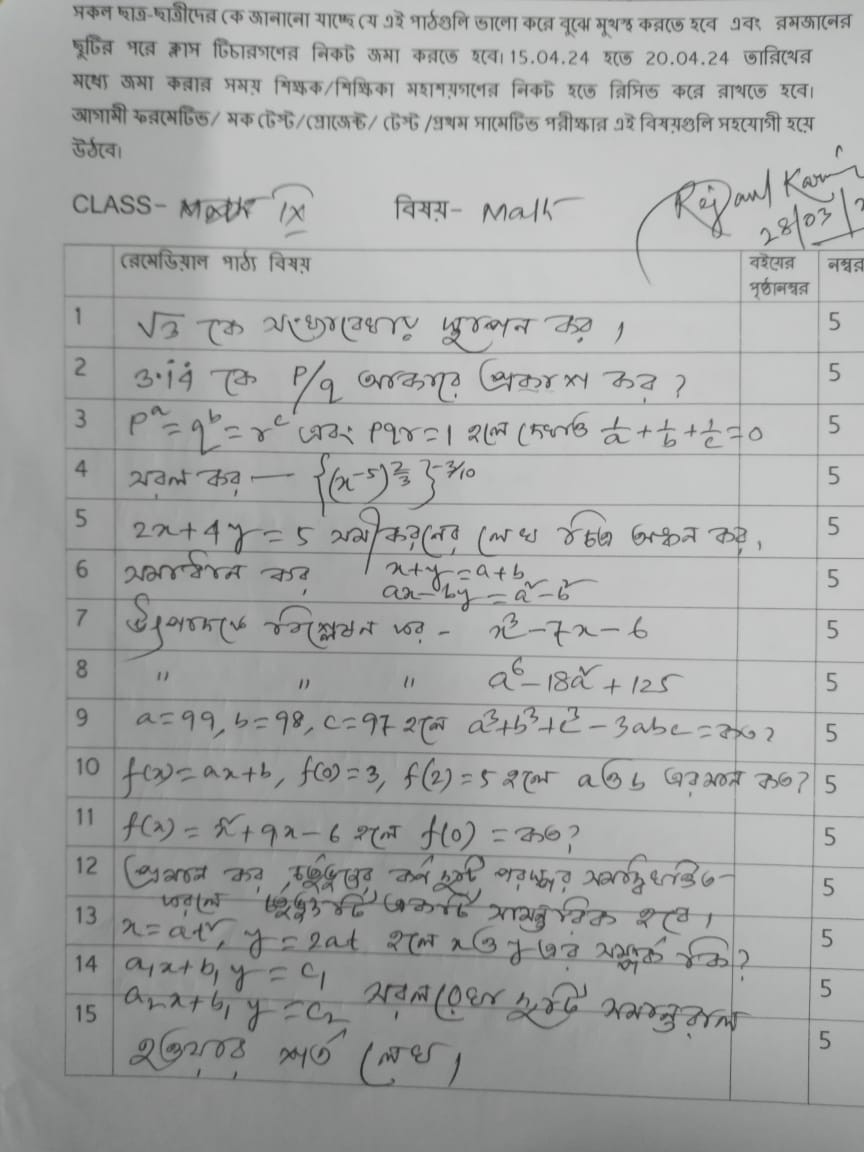 সকল ছাত্র-ছাত্রীদের কে জানানো যাচ্ছে যে এই পাঠগুলি ভালো করে বুঝে মুখস্থ করতে হবে এবং রমজানের
ছুটির পরে ক্লাস টিচারগণের নিকট জমা করতে হবে। 15.04.24 হতে 20.04.24 তারিখের
মধ্যে জমা করার সময় শিক্ষক/শিক্ষিকা মহাশয়গণের নিকট হতে রিসিভ করে রাখতে হবে।
আগামী ফরমেটিভ/ মক টেস্ট/প্রোজেক্ট/ টেস্ট /প্রথম সামেটিভ পরীক্ষার এই বিষয়গুলি সহযোগী হয়ে
উঠবে।
CLASS- IX বিষয়- Math
Rejaul Karim
28/03/2
রেমেডিয়াল পাঠ্য বিষয় বইয়ের পৃষ্ঠানম্বর নম্বর
1 √3 কে সংখ্যারেখায় স্থাপন কর। 5
2 3.1̇4̇ কে P/q আকারে প্রকাশ কর? 5
3 pᵃ = qᵇ = rᶜ এবং pqr=1 হলে দেখাও 1/a + 1/b + 1/c = 0 5
4 সরল কর — {(x⁻⁵)^2/3}^-3/10 5
5 2x+4y=5 সমীকরনের লেখ চিত্র অঙ্কন কর। 5
6 সমাধান কর x+y=a+b 5
ax-by=a²-b²
7 উৎপাদকে বিশ্লেষন কর - x³-7x-6 5
8 " " " a⁶-18a²+125 5
9 a=99, b=98, c=97 হলে a³+b³+c³-3abc=কত? 5
10 f(x)=ax+b, f(0)=3, f(2)=5 হলে a ও b এর মান কত? 5
11 f(x)=x²+9x-6 হলে f(0)=কত? 5
12 প্রমান কর চতুর্ভুজের কর্ণ দুটি পরস্পর সমদ্বিখন্ডিত 5
করলে চতুর্ভুজটি একটি সামন্তরিক হবে।
13 x=at², y=2at হলে x ও y এর সম্পর্ক কি? 5
14 a₁x+b₁y=c₁ 5
15 a₂x+b₁y=c₂ সরলরেখা দুটি সমান্তরাল 5
হওয়ার শর্ত লেখ।